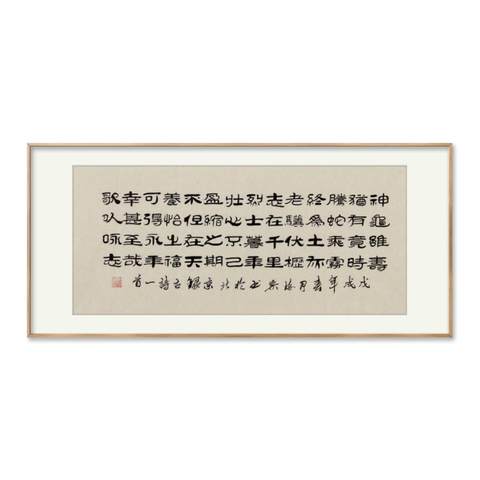 神龜雖壽
猶有竟時
騰蛇乘霧
終為土灰
老驥伏櫪
志在千里
烈士暮年
壯心不已
盈縮之期
不但在天
養怡之福
可得永年
幸甚至哉
歌以咏志
戊戌年春月海书於北京錄古詩一首